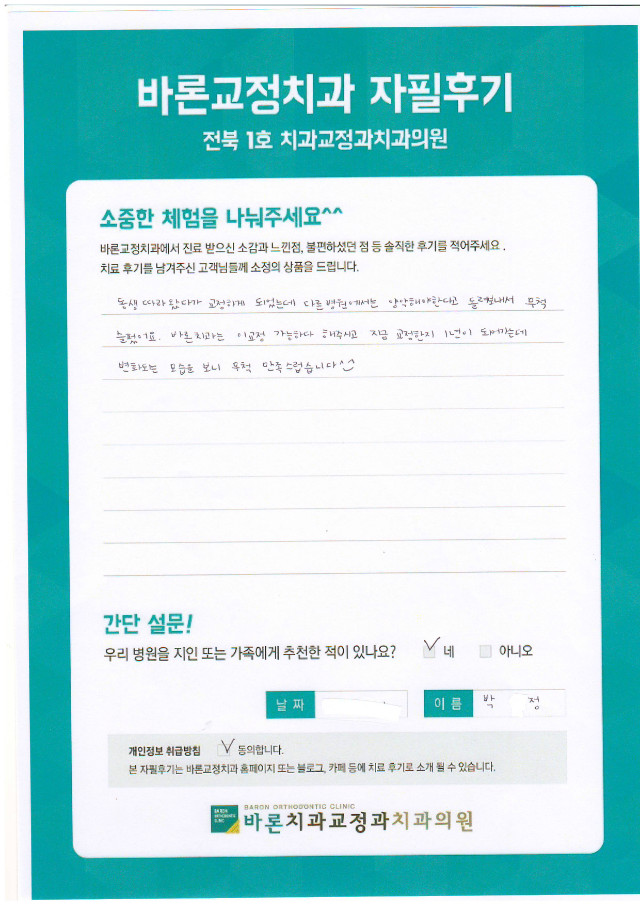 바론교정치과 자필후기
전북 1호 치과교정과치과의원
소중한 체험을 나눠주세요^^
바론교정치과에서 진료 받으신 소감과 느낀점, 불편하셨던 점 등 솔직한 후기를 적어주세요 .
치료 후기를 남겨주신 고객님들께 소정의 상품을 드립니다.
동생 따라 왔다가 교정하게 되었는데 다른병원에서는 양악해야한다고 돌려보내서 무척
슬펐어요. 바른치과는 이교정 가능하다 해주시고 지금 교정한지 1년이 되어가는데
변화되는 모습을 보니 무척 만족스럽습니다
간단 설문!
우리 병원을 지인 또는 가족에게 추천한 적이 있나요? 네 아니오
날 짜 이 름 박 정
개인정보 취급방침 동의합니다.
본 자필후기는 바론교정치과 홈페이지 또는 블로그, 카페 등에 치료 후기로 소개 될 수 있습니다.
BARON ORTHODONTIC CLINIC
바론치과교정과치과의원